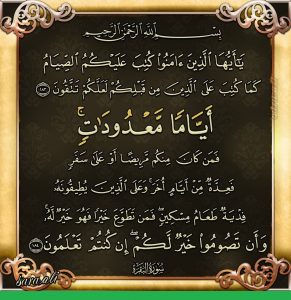 بِسْمِ اللَّهِ الرَّحْمَٰنِ الرَّحِيمِ
يَٰٓأَيُّهَا الَّذِينَ ءَامَنُوا۟ كُتِبَ عَلَيْكُمُ الصِّيَامُ
كَمَا كُتِبَ عَلَى الَّذِينَ مِن قَبْلِكُمْ لَعَلَّكُمْ تَتَّقُونَ ١٨٣
أَيَّامًا مَّعْدُودَٰتٍ ۚ
فَمَن كَانَ مِنكُم مَّرِيضًا أَوْ عَلَىٰ سَفَرٍ
فَعِدَّةٌ مِّنْ أَيَّامٍ أُخَرَ ۚ وَعَلَى الَّذِينَ يُطِيقُونَهُۥ
فِدْيَةٌ طَعَامُ مِسْكِينٍ ۖ فَمَن تَطَوَّعَ خَيْرًا فَهُوَ خَيْرٌ لَّهُۥ ۚ
وَأَن تَصُومُوا۟ خَيْرٌ لَّكُمْ ۖ إِن كُنتُمْ تَعْلَمُونَ ١٨٤
سُورَةُ الْبَقَرَةِ